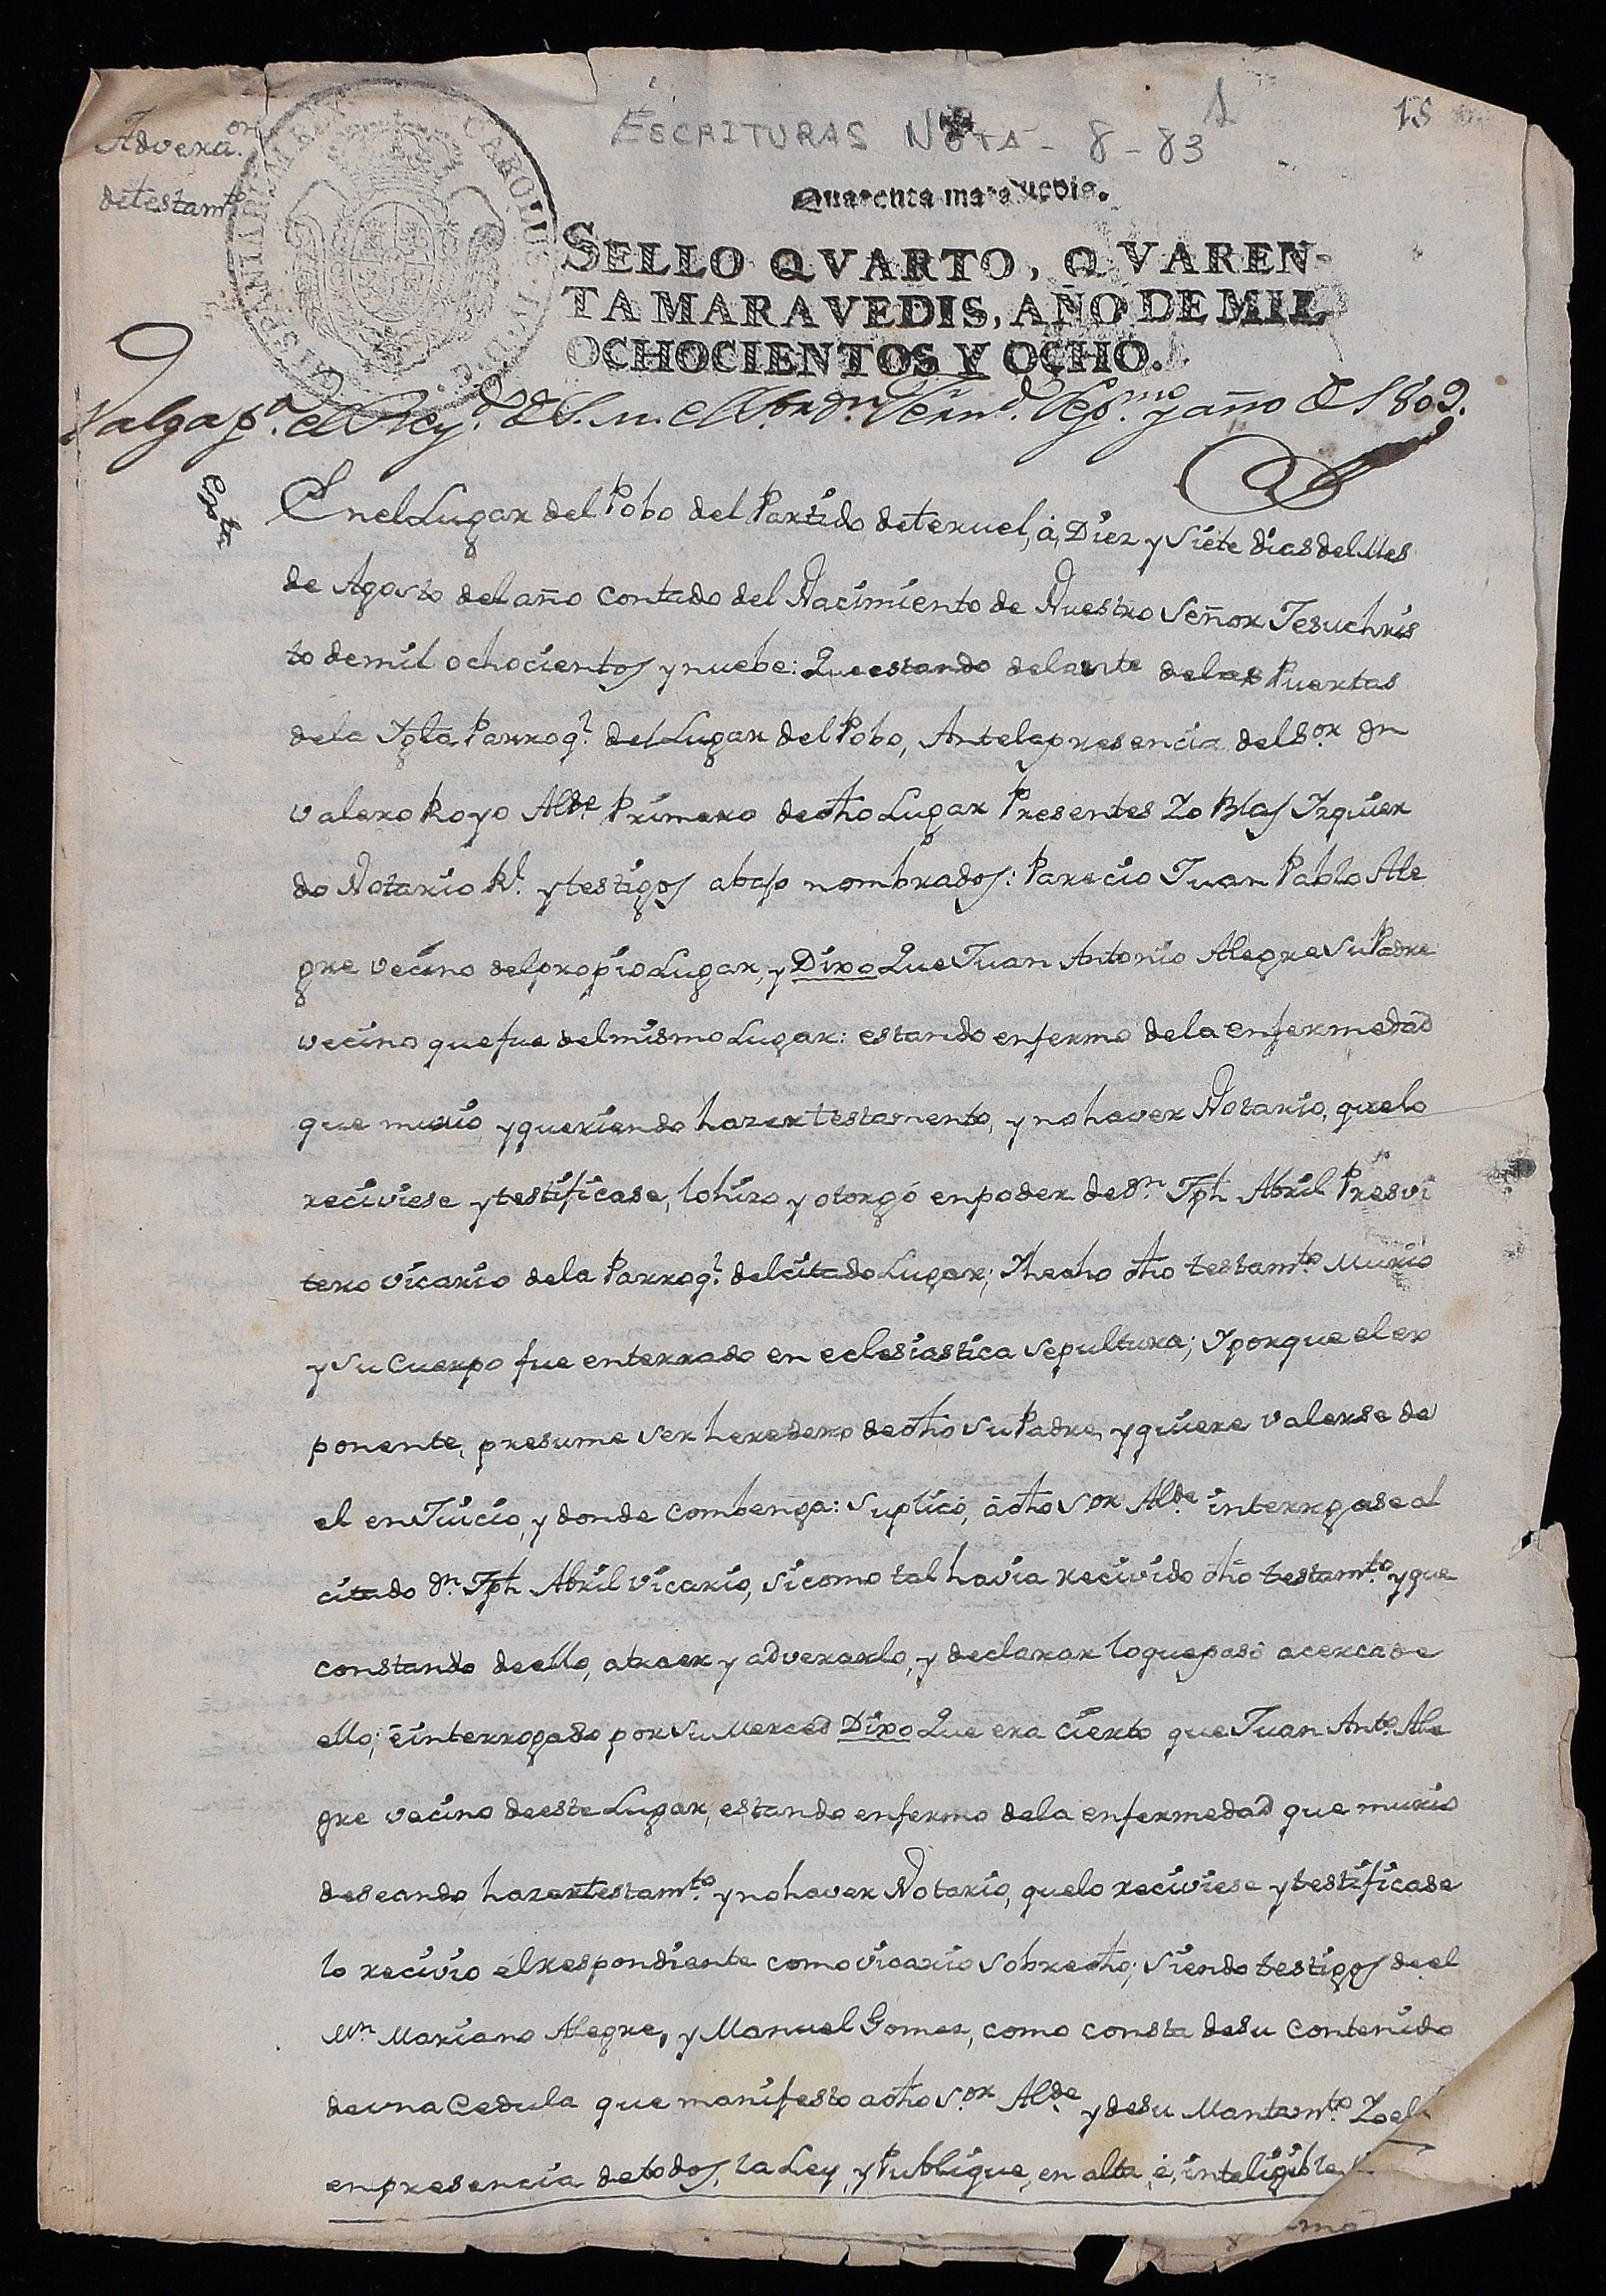 Advera.on
de testam.to
ESCRITURAS NOTA - 8 - 83
1
15
Quarenta maravedis.
SELLO QVARTO, QVAREN-
TA MARAVEDIS, AÑO DE MIL
OCHOCIENTOS Y OCHO.
CAROLUS IV D. G. HISPANIAR. REX
Valga p.a el Rey.do de S. M. el S.or Dn Fern.do Sep.mo y año de 1809.
En el Lugar del Pobo del Partido de teruel, á, Diez y Siete dias del Mes
de Agosto del año contado del Nacimiento de Nuestro Señor Jesuchris
to de mil ochocientos y nuebe: Que estando delante de las Puertas
de la Ygla Parroq.l del Lugar del Pobo, Ante la presencia del S.or Dn
Valero Royo Alde Primero de dho Lugar Presentes Yo Blas Yzquier
do Notario Rl. y testigos abajo nombrados: Parecio Juan Pablo Ale
gre vecino del propio Lugar, y Dixo Que Juan Antonio Alegre Su Padre
vecino que fue del mismo Lugar: estando enfermo de la enfermedad
que murio y queriendo hazer testamento, y no haver Notario, que lo
reciviese y testificase, lo hizo y otorgó en poder de Dn. Jph Abril Presvi
tero Vicario de la Parroq.l del citado Lugar; Y hecho dho testam.to Murio
y Su Cuerpo fue enterrado en eclesiastica Sepultura; Y porque el ex
ponente, presume ser heredero de dho Su Padre, y quiere valerse de
el en Juicio, y donde combenga: Suplicó, á dho Sor Alde interrogase al
citado Dn. Jph Abril Vicario, Si como tal havia recivido dho testam.to y que
constando de ello, atraer y adverarlo, y declarar lo que pasó acerca de
ello; é interrogado por Su Merced Dixo Que era cierto que Juan Ant.o Ale
gre vecino de este Lugar, estando enfermo de la enfermedad que murio
deseando hazer testam.to y no haver Notario, que lo reciviese y testificase
lo recivio él respondiente como Vicario Sobredho; Siendo testigos de el
Mn Mariano Alegre, y Manuel Gomez, como consta de su Contenido
de una Cedula que manifesto a dho S.or Al.de y de su Mantam.to Yo el
en presencia de todos, la Ley, y Publique, en alta, é, inteligible